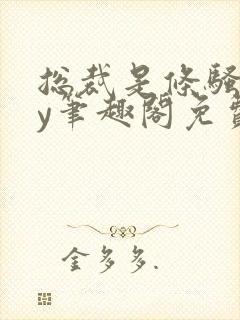 总裁是条骚
y笔趣阁免费
金多多.